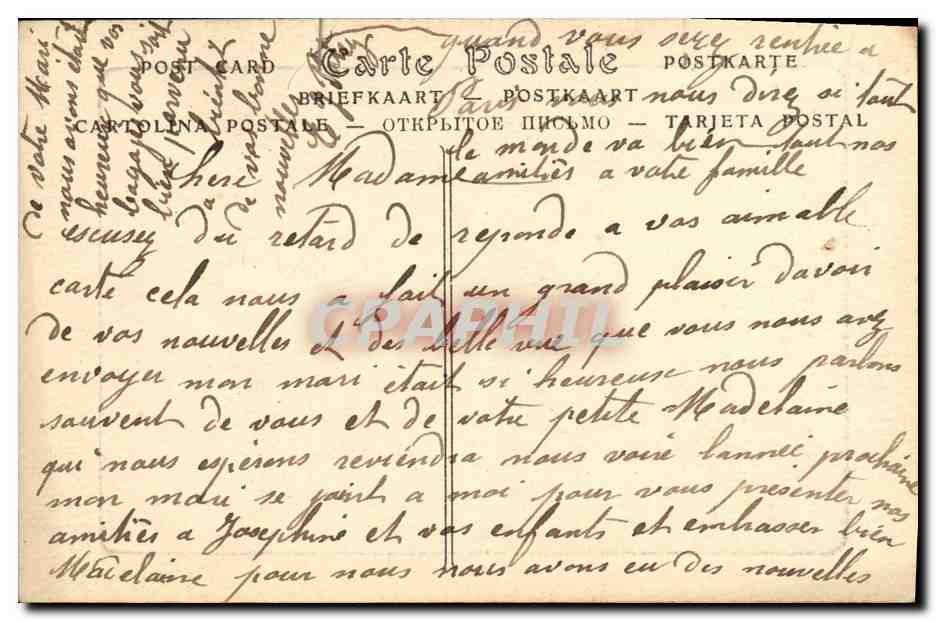 POST CARD Carte Postale POSTKARTE
BRIEFKAART — POSTKAART
CARTOLINA POSTALE — ОТКРЫТОЕ ПИСЬМО — TARJETA POSTAL
chere Madame
escusez du retard de reponde a vos aimable
carte cela nous a fait un grand plaisir davoir
de vos nouvelles et des belle vue que vous nous avez
envoyer mon mari était si heureuse nous parlons
souvent de vous et de votre petite Madelaine
qui nous espérons reviendra nous voire lanneé prochaine
mon mari se joint a moi pour vous presenter nos
amitiès a Josephine et vos enfants et embrasser bien
Madelaine pour nous nous avons eu des nouvelles
de votre Mari
nous avons était
heureuse que vos
bagage vous soit
bien parvenu
a bientôt
de vos bonne
nouvelle
quand vous serez rentrée a
Paris vous nous direz si tout
le monde va bien tout nos
amitiés a votre famille
CPAPHIL